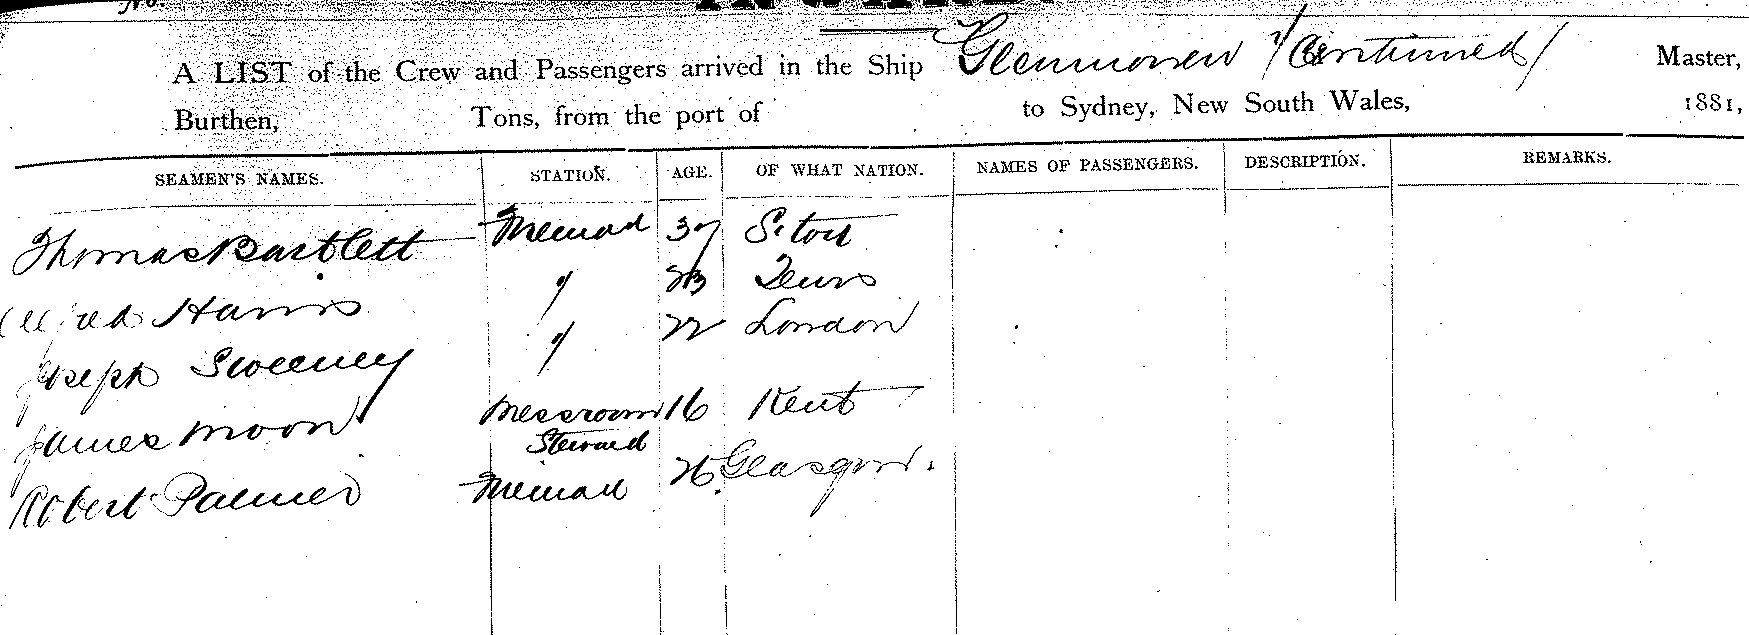 No.
A LIST of the Crew and Passengers arrived in the Ship Glenmorven /Continued/ Master,
Burthen, Tons, from the port of to Sydney, New South Wales, 1881,
SEAMEN'S NAMES. STATION. AGE. OF WHAT NATION. NAMES OF PASSENGERS. DESCRIPTION. REMARKS.
Thomas Bartlett Fireman 37
Alfred Harris " 23
Joseph Sweeney " 22 London
James Moon Messroom Steward 16 Kent
Robert Palmer Fireman 26 Glasgow.